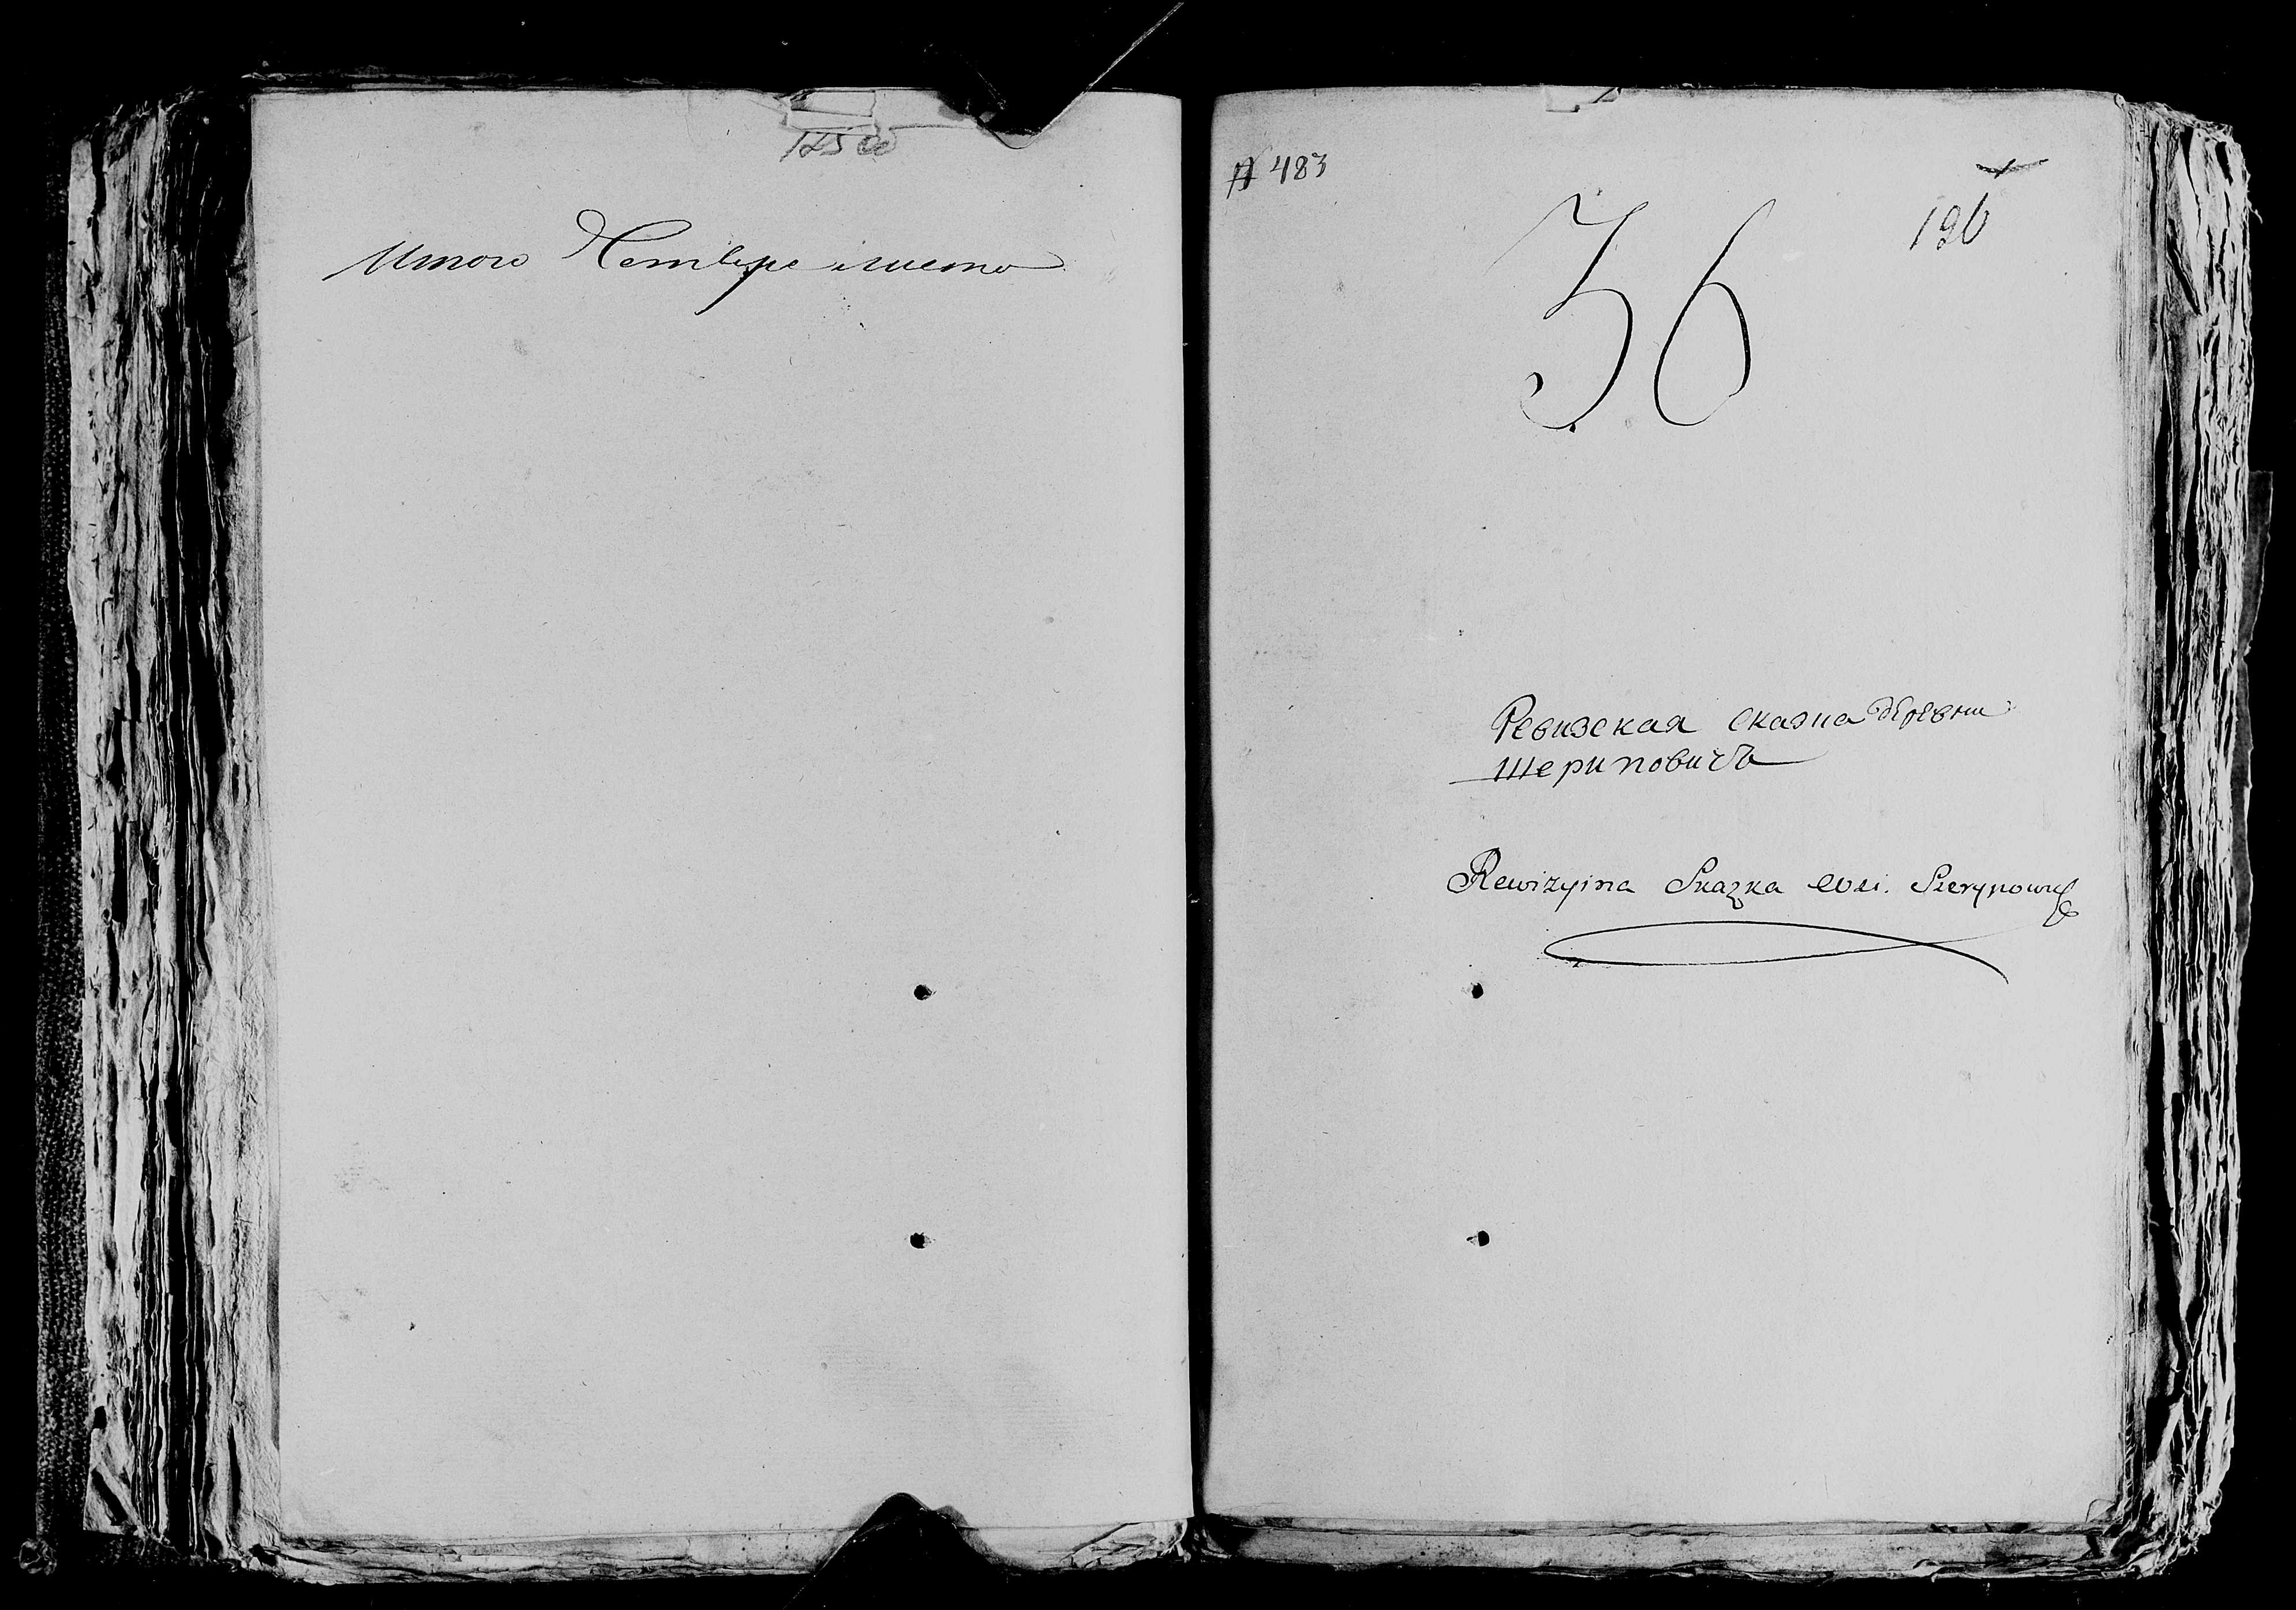 125 об
Итого Четыре листа
№ 483
196
36
Ревизская сказка деревни
Шериповичъ
Rewizyina Skazka wsi. Szerypowicz